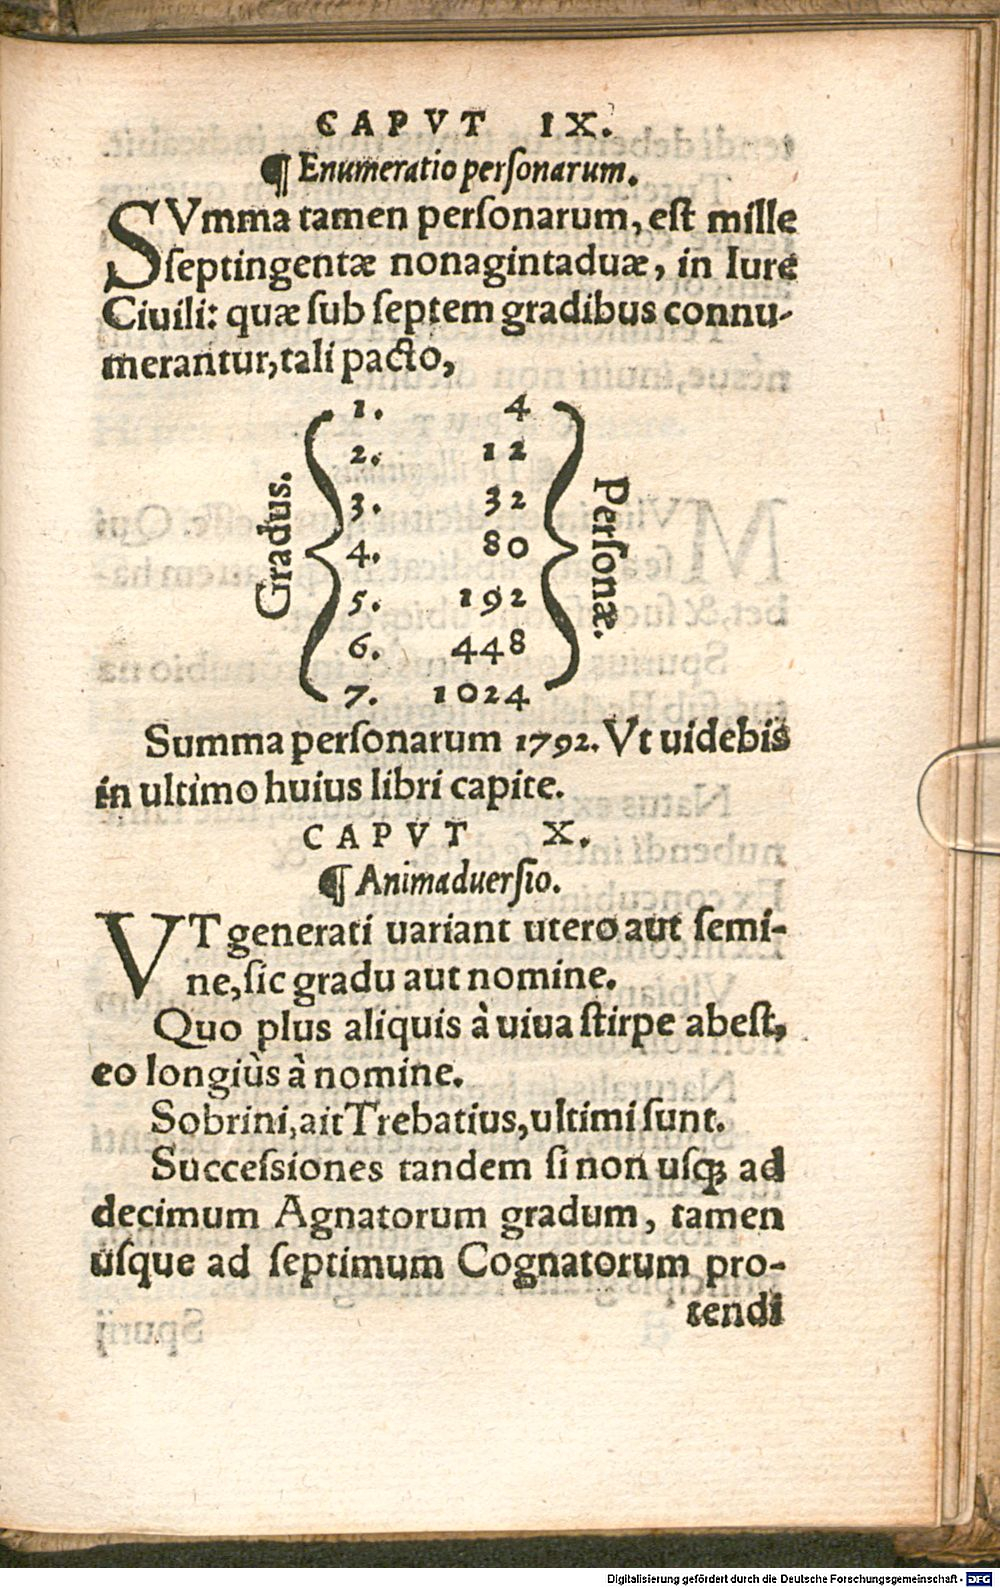 CAPVT IX.
¶ Enumeratio perſonarum.
SVmma tamen perſonarum, eſt mille
ſeptingentæ nonagintaduæ, in Iure
Ciuili: quæ ſub ſeptem gradibus connu-
merantur, tali pacto,
Gradus.
Perſonæ.
1. 4
2. 12
3. 32
4. 80
5. 192
6. 448
7. 1024
Summa perſonarum 1792. Vt uidebis
in ultimo huius libri capite.
CAPVT X.
¶ Animaduerſio.
VT generati uariant utero aut ſemi-
ne, ſic gradu aut nomine.
Quo plus aliquis à uiua ſtirpe abeſt,
eo longiùs à nomine.
Sobrini, ait Trebatius, ultimi ſunt.
Succeſsiones tandem ſi non uſqꝫ ad
decimum Agnatorum gradum, tamen
uſque ad ſeptimum Cognatorum pro-
tendi
Digitalisierung gefördert durch die Deutsche Forschungsgemeinschaft - DFG